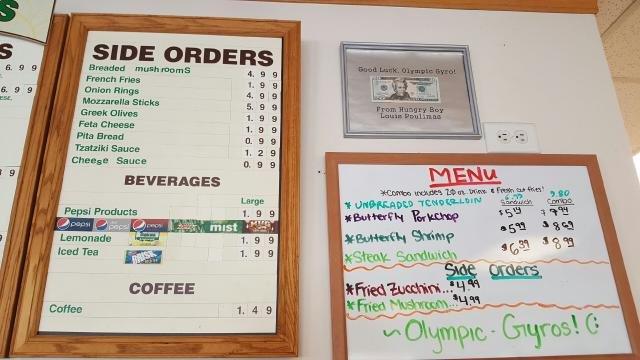 S
6.99
9.99
SIDE ORDERS
Breaded mushroomS 4.99
French Fries 1.99
Onion Rings 4.99
Mozzarella Sticks 5.99
Greek Olives 1.99
Feta Cheese 1.99
Pita Bread 0.99
Tzatziki Sauce 1.29
Cheese Sauce 0.99
BEVERAGES
Large
Pepsi Products 1.99
pepsi pepsi pepsi mist MUG
Lemonade 1.99
Iced Tea BRISK 1.99
COFFEE
Coffee 1.49
Good Luck, Olympic Gyro!
From Hungry Boy
Louis Poulimas
MENU
*Combo includes 20 oz. Drink & Fresh cut fries!
6.99 9.80
* UNBREADED TENDERLOIN Sandwich Combo
*Butterfly Porkchop $5.49 $7.99
*Butterfly Shrimp $5.99 $8.69
*Steak Sandwich $6.39 $8.99
Side Orders
*Fried Zucchini... $4.99
*Fried Mushroom... $4.99
~Olympic-Gyros! (: